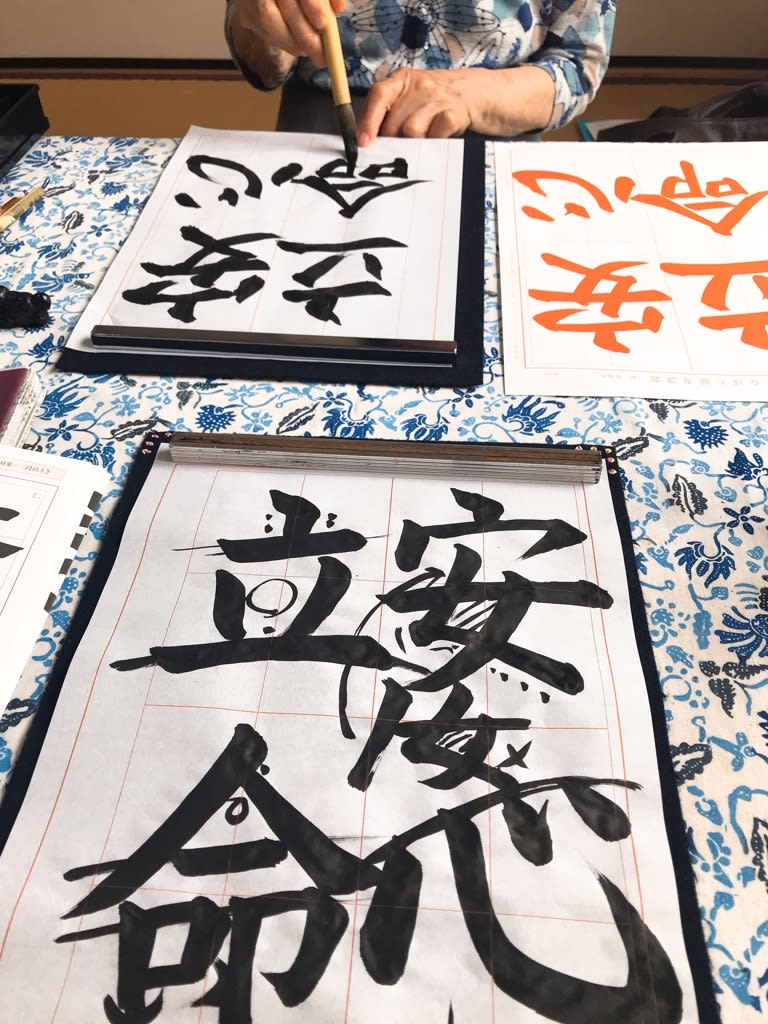 安心
立命
安心
立命
安心
立命